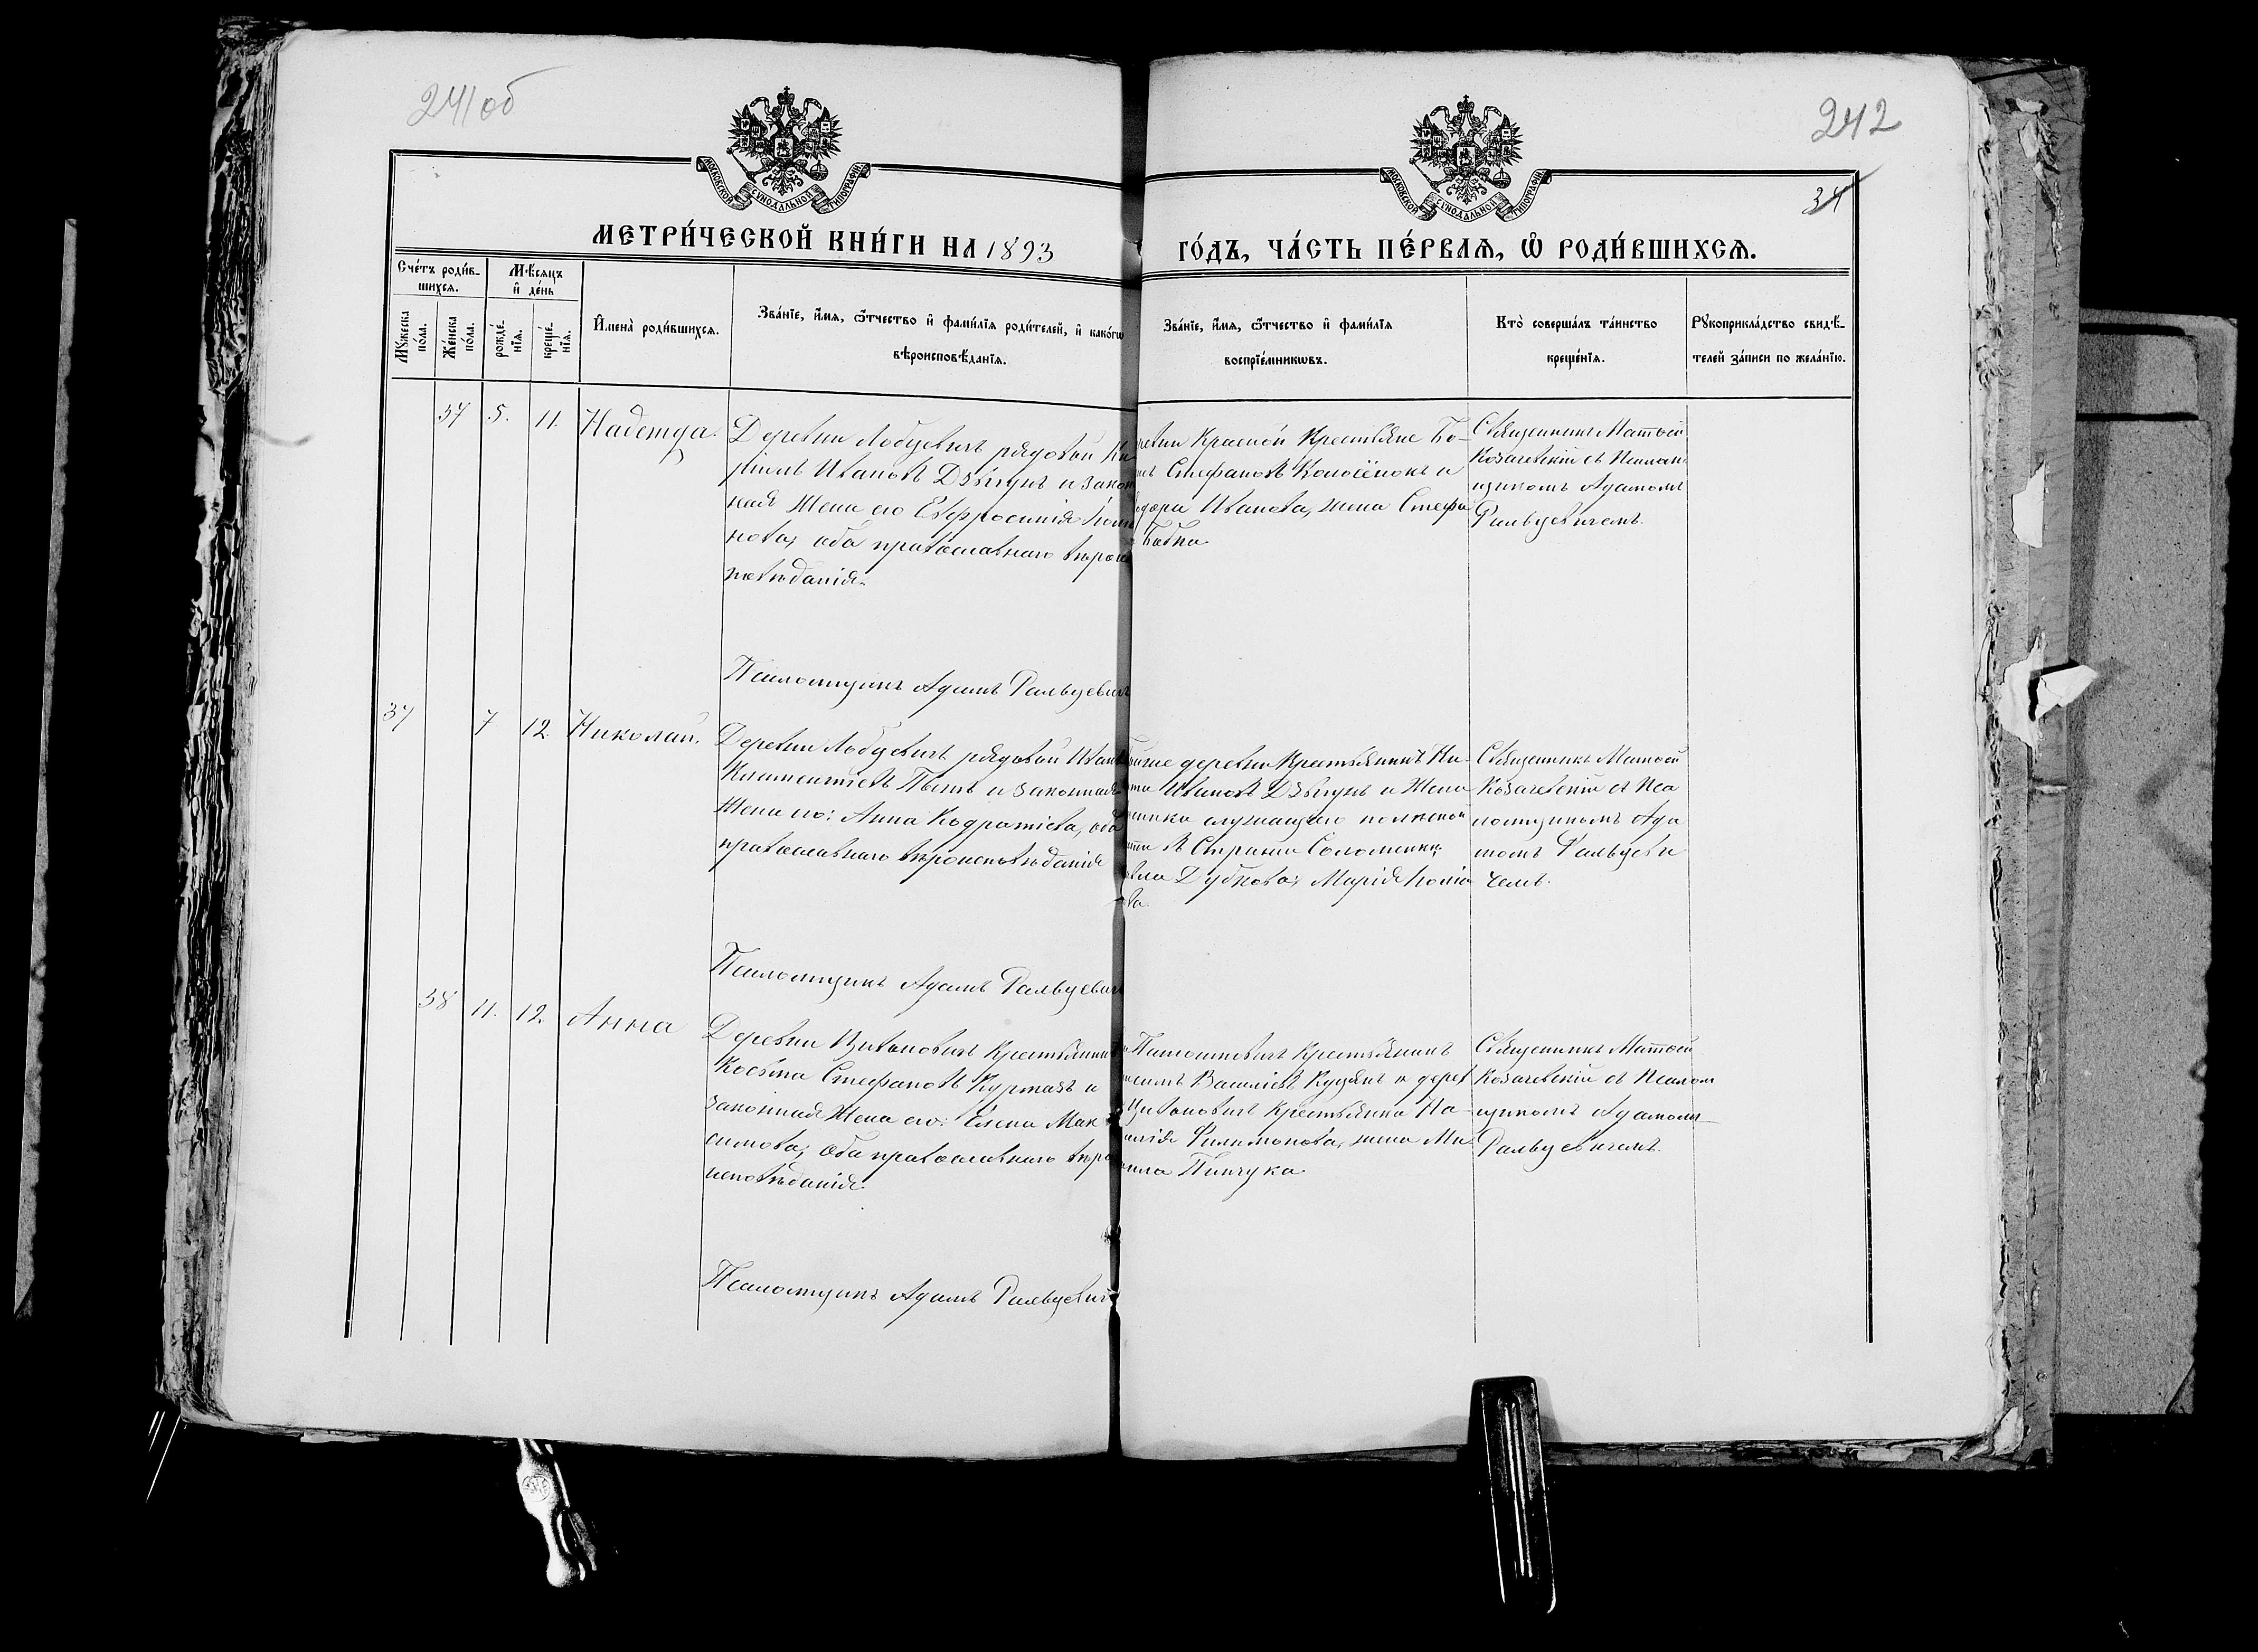 241об
242
34
МОСКОВСКОЙ СѴНОДАЛЬНОЙ ТИПОГРАФІИ
МОСКОВСКОЙ СѴНОДАЛЬНОЙ ТИПОГРАФІИ
МЕТРИ́ЧЕСКОЙ КНИ́ГИ НА 1893
ГО́ДЪ, ЧА́СТЬ ПЕ́РВАЯ, Ѡ РОДИ́ВШИХСЯ.
Сче́тъ роди́в-
шихся.
Мѣсяцъ
и де́нь
Мꙋ́жеска
по́ла.
Же́нска
по́ла.
рожде́-
нїя.
креще́-
нїя.
И҆мена̀ роди́вшихся.
Зва́нїе, и҆́мя, ѻ҆́тчество и҆ фами́лїя роди́телей, и҆ како́гѡ
вѣроисповѣ́данїя.
Зва́нїе, и҆́мя, ѻ҆́тчество и҆ фами́лїя
воспрїе́мникѡвъ.
Кто̀ соверша́лъ та́инство
креще́нїя.
Рꙋкоприкла́дство свидѣ́-
телей за́писи по жела́нїю.
37 5. 11. Надежда.
Деревни Лобудевичъ рядовой Ки
ріилъ Ивановъ Дзвигунъ и закон
ная жена его Евфросинія
нова, оба православнаго вѣроис
повѣданія.
Псаломщикъ Адамъ Ральцевичъ
ревни Красной Крестьяне Бо-
Стефановъ Колосёнокъ и
Ѳдора Иванова, жена Стефа
Бобка
Священникъ Матѳей
Козачевскій съ Псалом
щикомъ Адамомъ
Ральцевичемъ.
37 7 12. Николай.
Деревни Лобудевичъ рядовой Иванъ
Климентіевъ Пыть и законная
жена его: Анна Кодратіева, оба
православнаго вѣроисповѣданія
Псаломщикъ Адамъ Ральцевич
деревни Крестьянинъ Ни-
Ивановъ Дзвигунъ и жена
служащаго
въ
вла Дубкова, Марія
ва.
Священникъ Матѳей
Козачевскій съ Пса
ломщикомъ Ада
момъ Ральцеви
чемъ.
38 11. 12. Анна
Деревни Цивоновичъ Крестьянинъ
Косьма Стефановъ Куртазъ и
законная жена его: Елена Мак
симова; оба православнаго вѣро
исповѣданія.
Псаломщикъ Адамъ Ральцевич
Крестьянинъ
Василіевъ Куцякъ и дерев
Цивоновичъ Крестьянка На-
талія Филимонова, жена Ми
хаила Пинчука.
Священникъ Матѳей
Козачевскій съ Псалом
щикомъ Адамомъ
Ральцевичемъ.